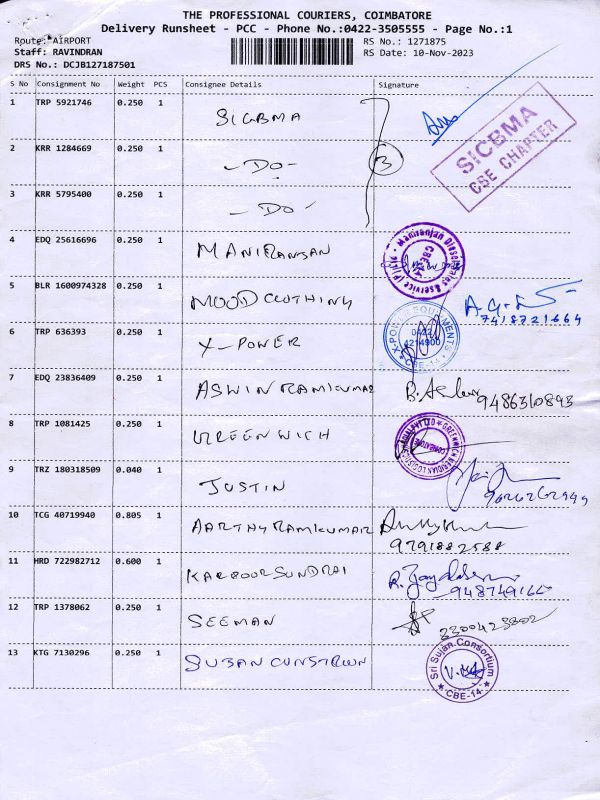 THE PROFESSIONAL COURIERS, COIMBATORE
Delivery Runsheet - PCC - Phone No.:0422-3505555 - Page No.:1
Route: AIRPORT RS No.: 1271875
Staff: RAVINDRAN RS Date: 10-Nov-2023
DRS No.: DCJB127187501
S No Consignment No Weight PCS Consignee Details Signature
1 TRP 5921746 0.250 1 SICBMA
SICBMA
CBE CHAPTER
2 KRR 1284669 0.250 1 -DO- 3
3 KRR 5795400 0.250 1 -DO-
4 EDQ 25616696 0.250 1 MANIRANJAN
CBE-14
5 BLR 1600974328 0.250 1 MOOD CLOTHING
7418721664
6 TRP 636393 0.250 1 X-POWER
X-POWER EQUIPMENTS
0422
4214900
CBE-14
7 EDQ 23836409 0.250 1 ASWIN RAMKUMAR 9486310893
8 TRP 1081425 0.250 1 GREENWICH
GREENWICH MERIDIAN LOGISTICS
9 TRZ 180318509 0.040 1 JUSTIN
10 TCG 40719940 0.805 1 AARTHY RAMKUMAR
9791882588
11 HRD 722982712 0.600 1
12 TRP 1378062 0.250 1 SEEMAN
13 KTG 7130296 0.250 1 SUJAN
Sri Sujan Consortium
CBE-14